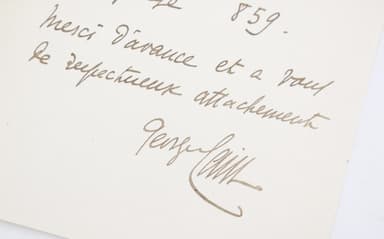 859.
Merci d'avance et a vous
de respectueux attachements
Georges Cain